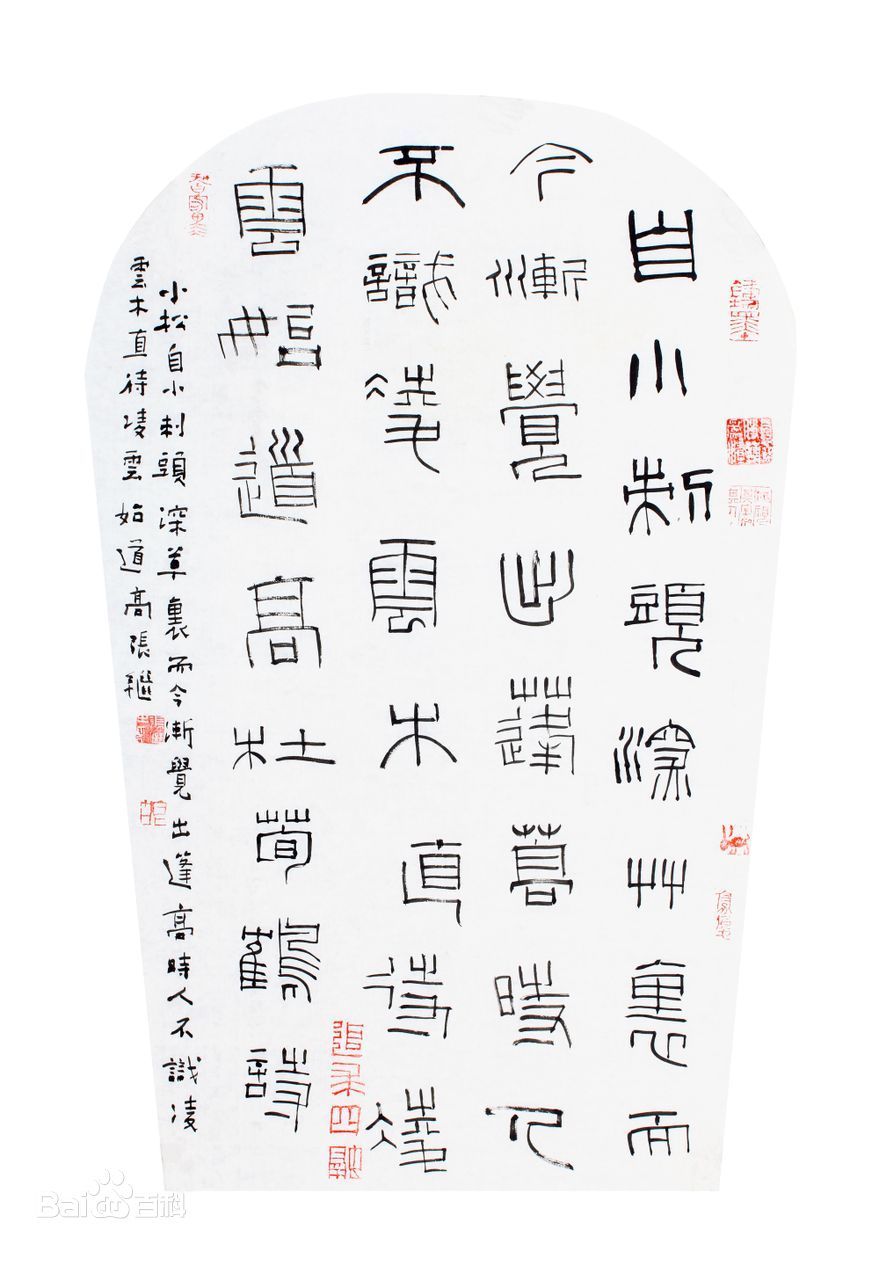 自小刺頭深艸裏而
今漸覺出蓬蒿時人
不識凌雲木直待凌
雲始道高杜荀鶴詩
小松自小刺頭深草裏而今漸覺出蓬高時人不識凌
雲木直待凌雲始道高張繼
Baidu百科